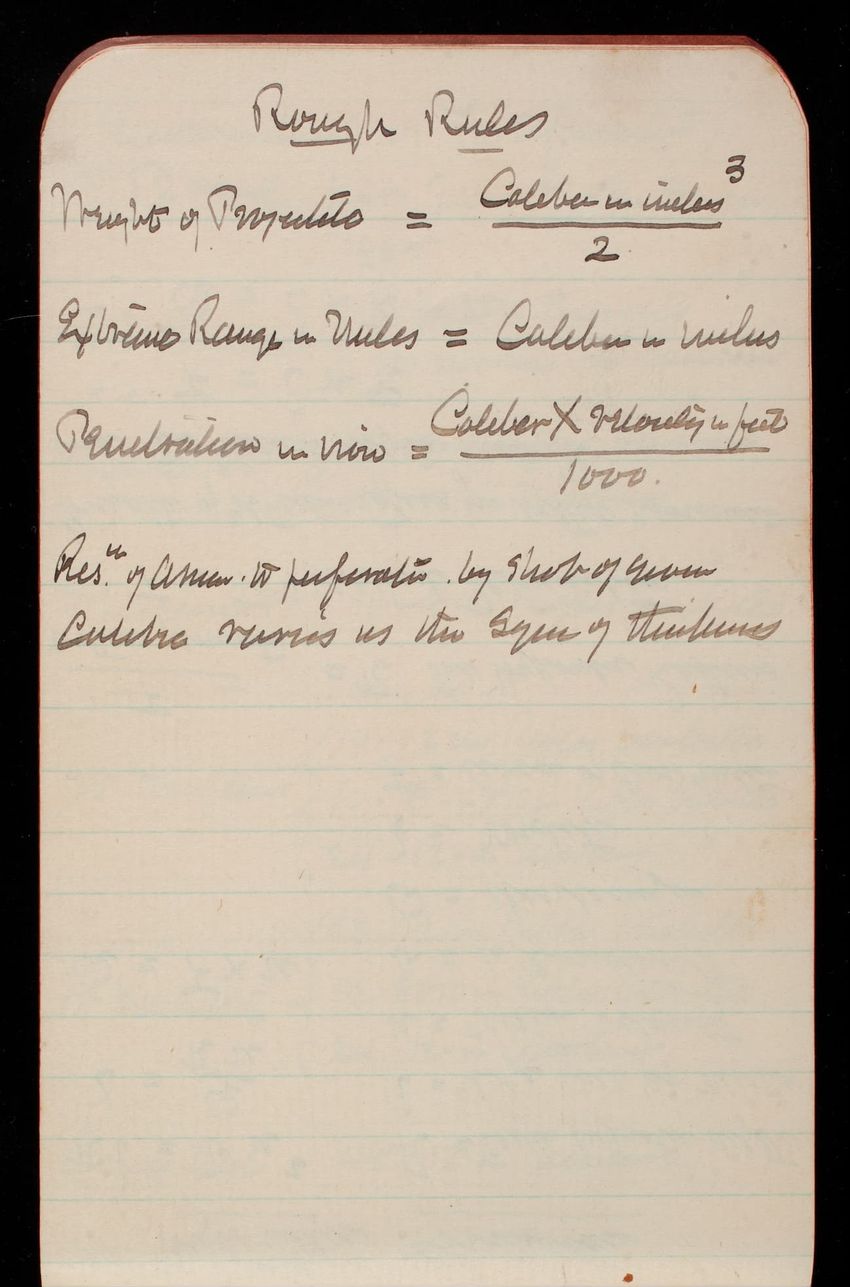 Rough Rules
Weight of Projectile = Caliber in inches³
2
Extreme Range in Miles = Caliber in inches
Penetration in iron = Caliber X velocity in feet
1000.
Res.ⁿ of Armor to perforatn. by shot of given
Calibre varies as the Sqre of thickness